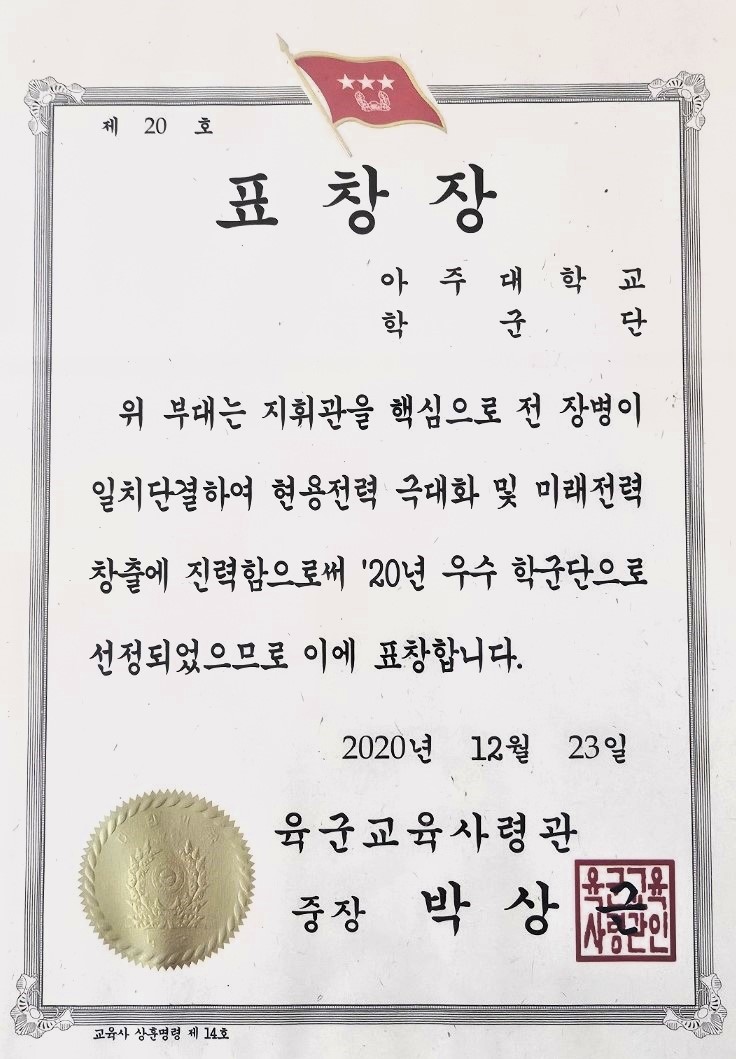 제 20 호
표 창 장
아 주 대 학 교
학 군 단
위 부대는 지휘관을 핵심으로 전 장병이
일치단결하여 현용전력 극대화 및 미래전력
창출에 진력함으로써 '20년 우수 학군단으로
선정되었으므로 이에 표창합니다.
2020년 12월 23일
육군교육사령관
중장 박 상 근
육군교육
사령관인
교육사 상훈명령 제 14호